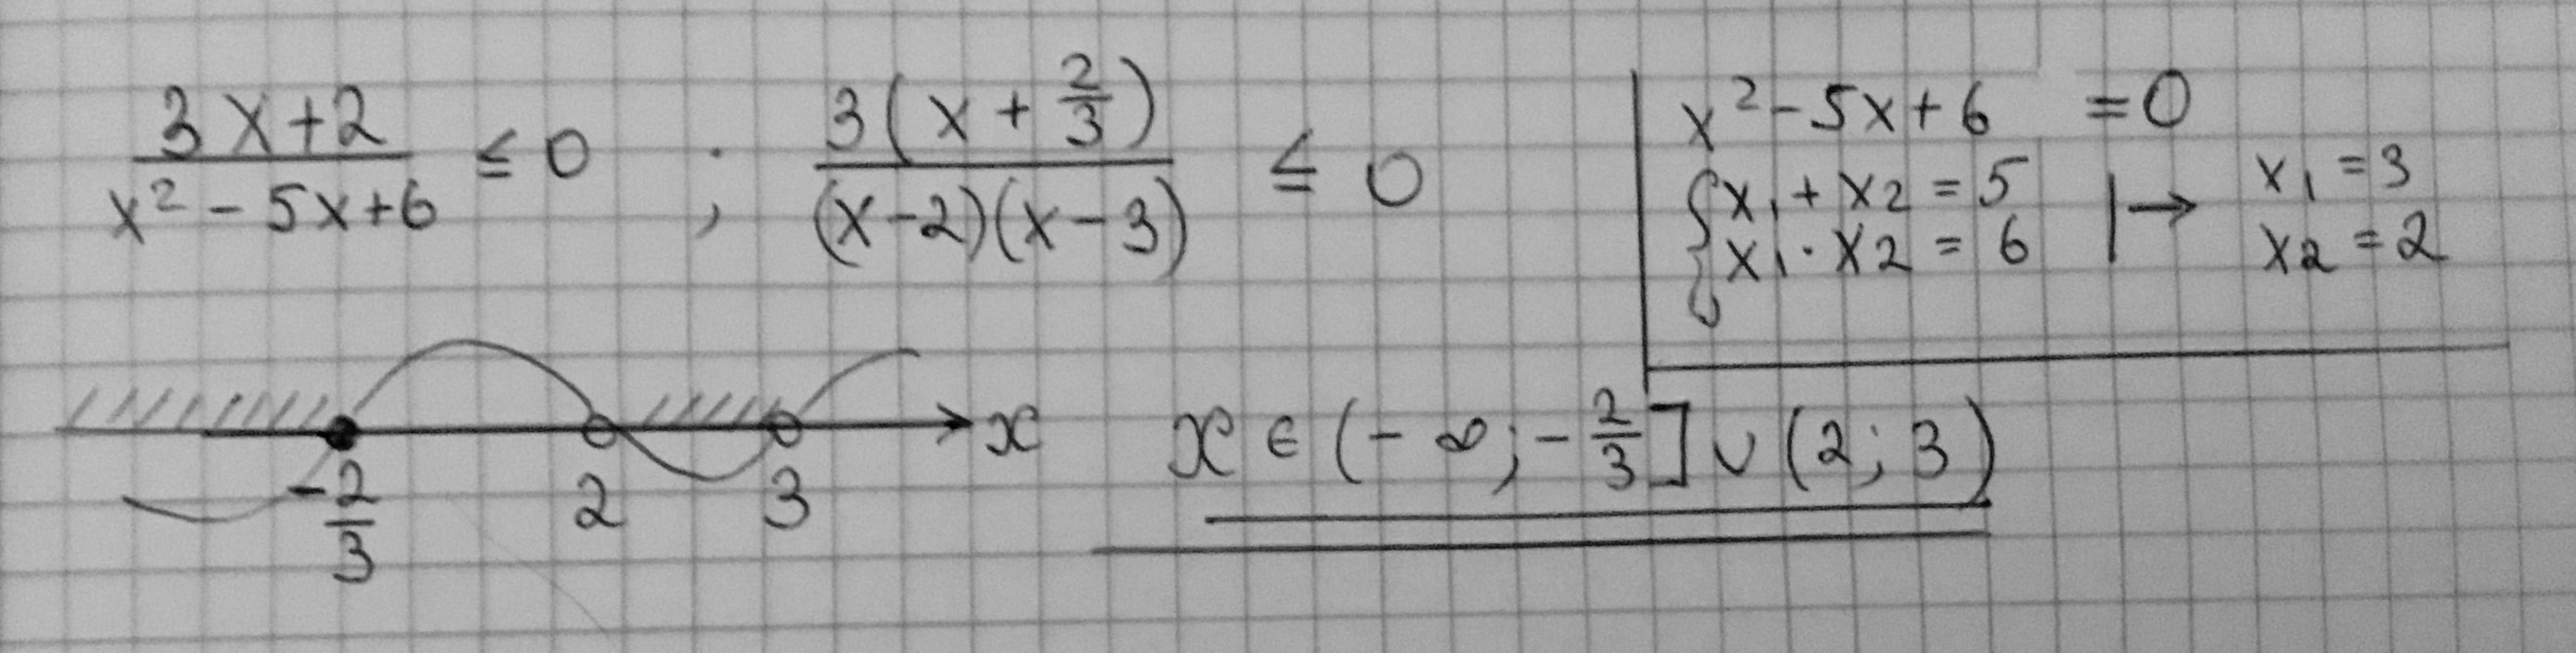 (3x+2)/(x²-5x+6) ≤ 0 ; 3(x+2/3)/((x-2)(x-3)) ≤ 0
x²-5x+6 =0
{x₁+x₂=5
x₁·x₂=6 |→ x₁=3
x₂=2
-2/3 2 3 x
x ∈ (-∞;-2/3]∪(2;3)